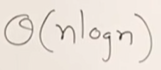 Θ(nlogn)